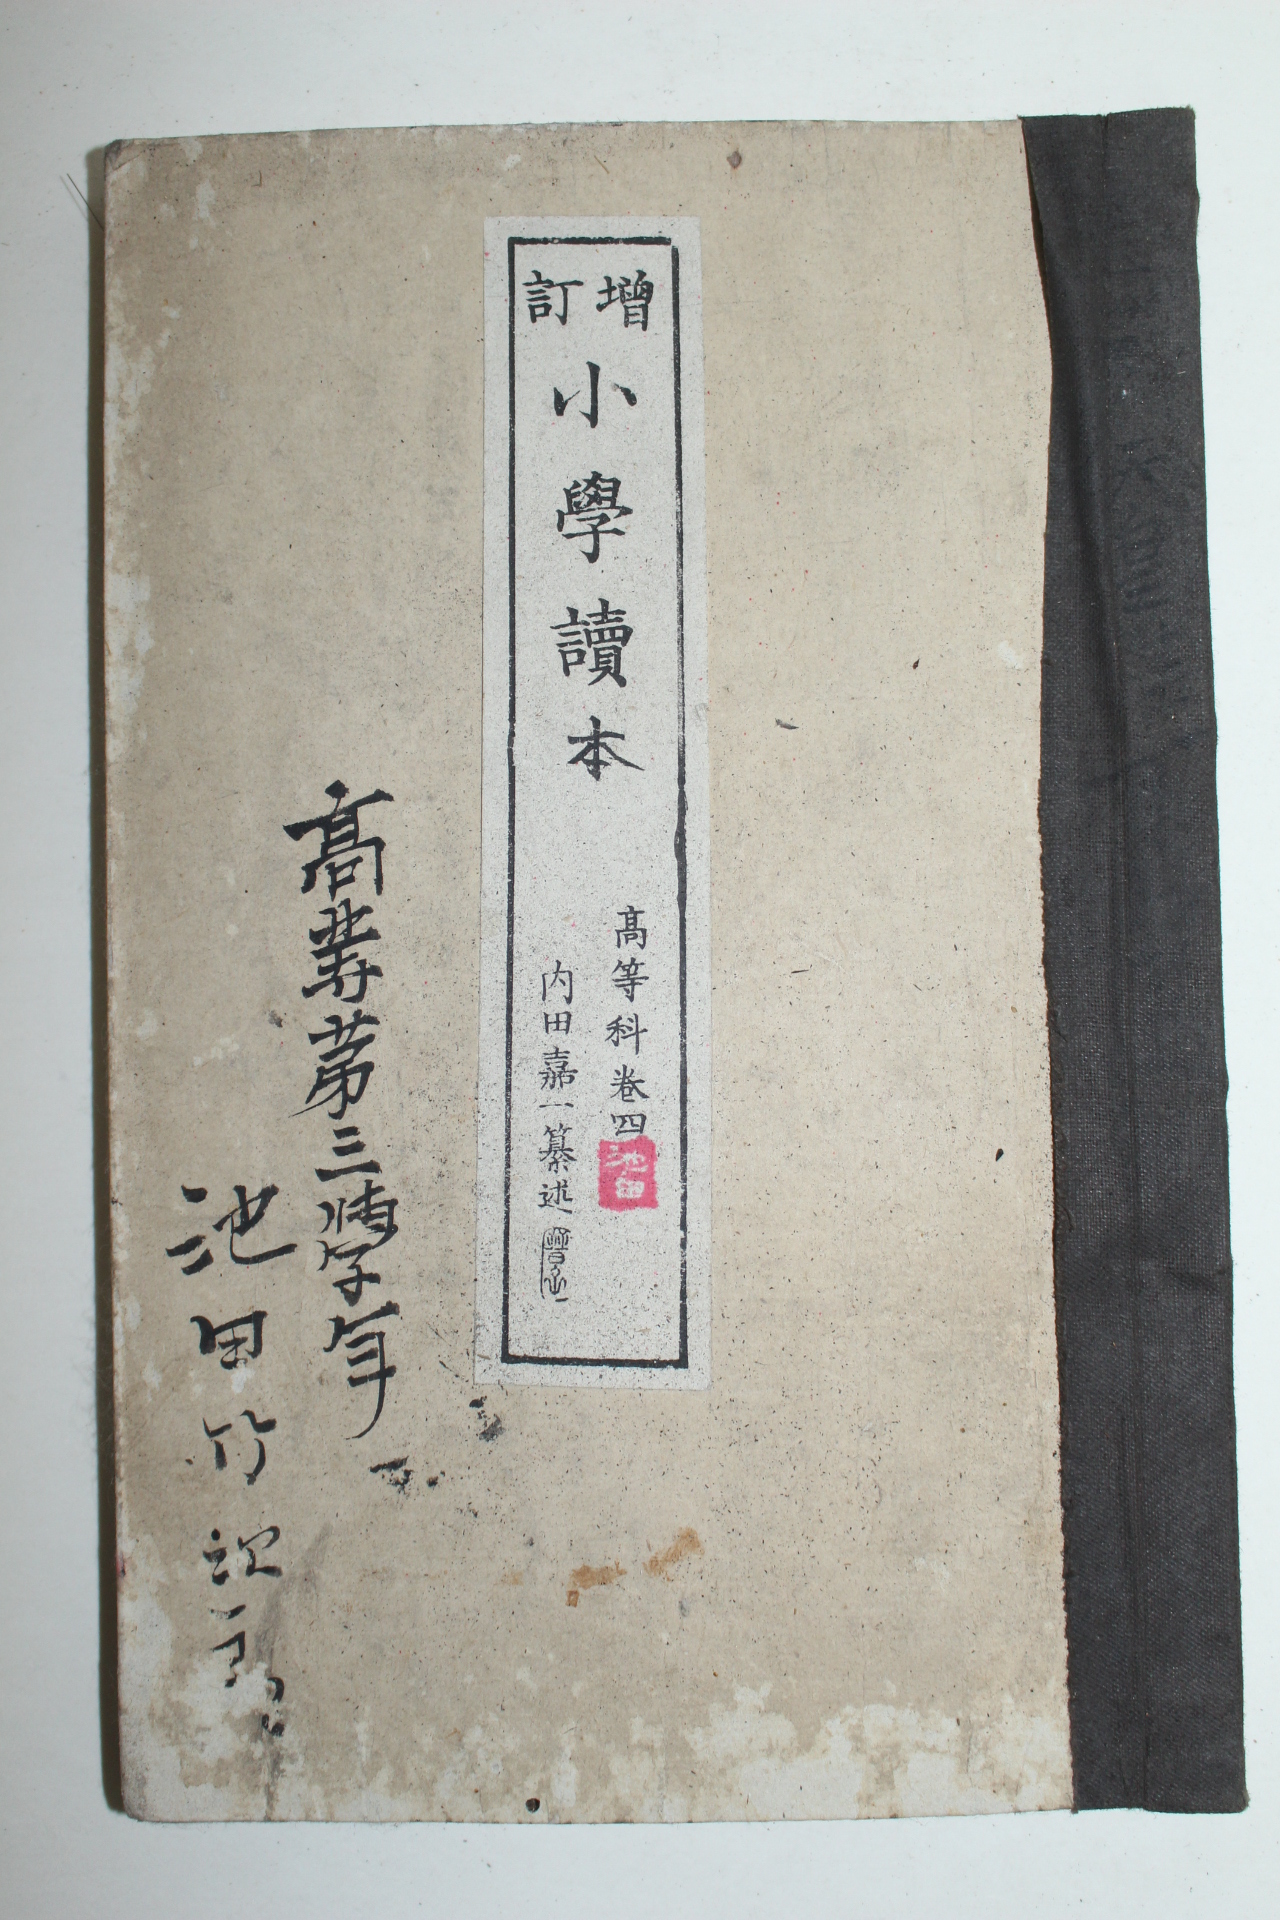 增訂
小學讀本
高等科卷四
池田
内田嘉一纂述
高等第三
学年
池田竹次郎